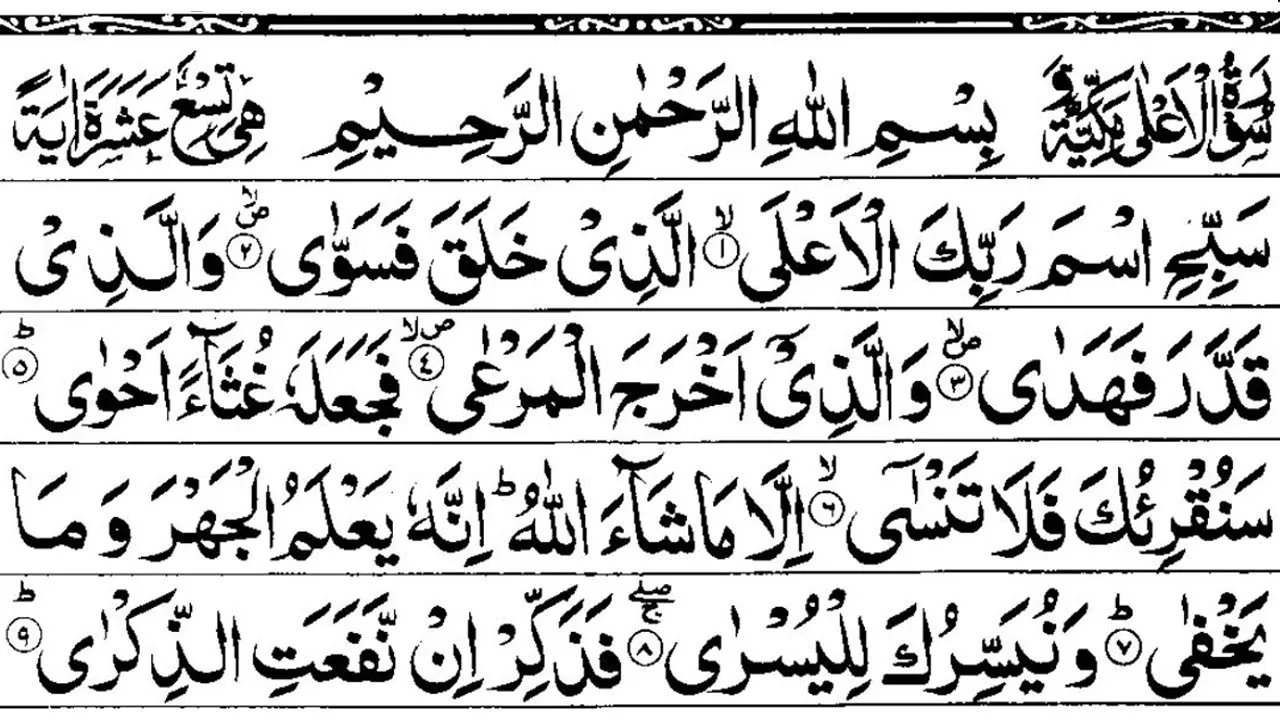 سُوْرَةُ الْاَعْلٰى مَكِّيَّةٌ وَّ بِسْمِ اللّٰهِ الرَّحْمٰنِ الرَّحِيْمِ هِىَ تِسْعَ عَشَرَةَ اٰيَةً
سَبِّحِ اسْمَ رَبِّكَ الْاَعْلَى ۙ﴿۱﴾ الَّذِىْ خَلَقَ فَسَوّٰى ۪ۙ﴿۲﴾ وَالَّذِىْ
قَدَّرَ فَهَدٰى ۪ۙ﴿۳﴾ وَالَّذِىْۤ اَخْرَجَ الْمَرْعٰى ۪ۙ﴿۴﴾ فَجَعَلَهٗ غُثَآءً اَحْوٰى ؕ﴿۵﴾
سَنُقْرِئُكَ فَلَا تَنْسٰٓى ۙ﴿۶﴾ اِلَّا مَا شَآءَ اللّٰهُ ؕ اِنَّهٗ يَعْلَمُ الْجَهْرَ وَ مَا
يَخْفٰى ؕ﴿۷﴾ وَ نُيَسِّرُكَ لِلْيُسْرٰى ۚۖ﴿۸﴾ فَذَكِّرْ اِنْ نَّفَعَتِ الذِّكْرٰى ؕ﴿۹﴾